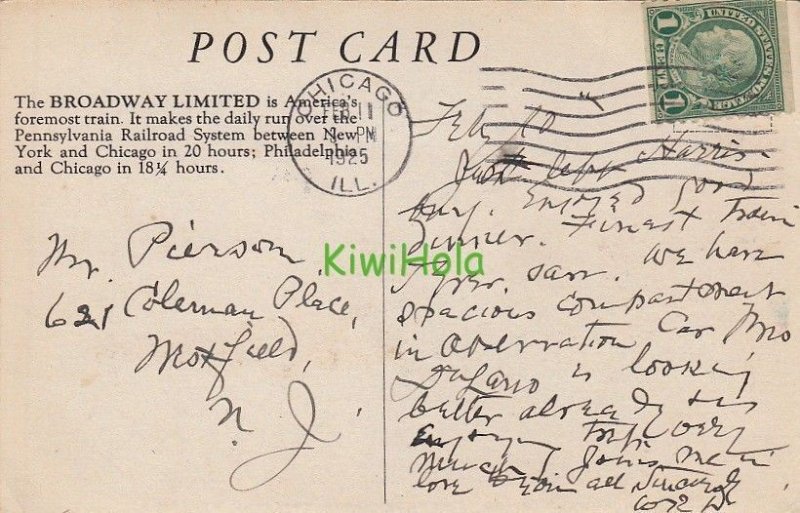 POST CARD
The BROADWAY LIMITED is America's
foremost train. It makes the daily run over the
Pennsylvania Railroad System between New
York and Chicago in 20 hours; Philadelphia
and Chicago in 18¼ hours.
CHICAGO
FEB 11
PM
1925
ILL.
1 CENT 1
Mr. Pierson,
621 Coleman Place,
N. J.
KiwiHola
Feb 10
Just left Harris-
burg. Enjoyed good
dinner. Finest train
I ever saw. We have
spacious compartment
in Observation Car Mrs
is looking
better already & is
enjoying trip very
much. Joins me in
love to you all Sincerely